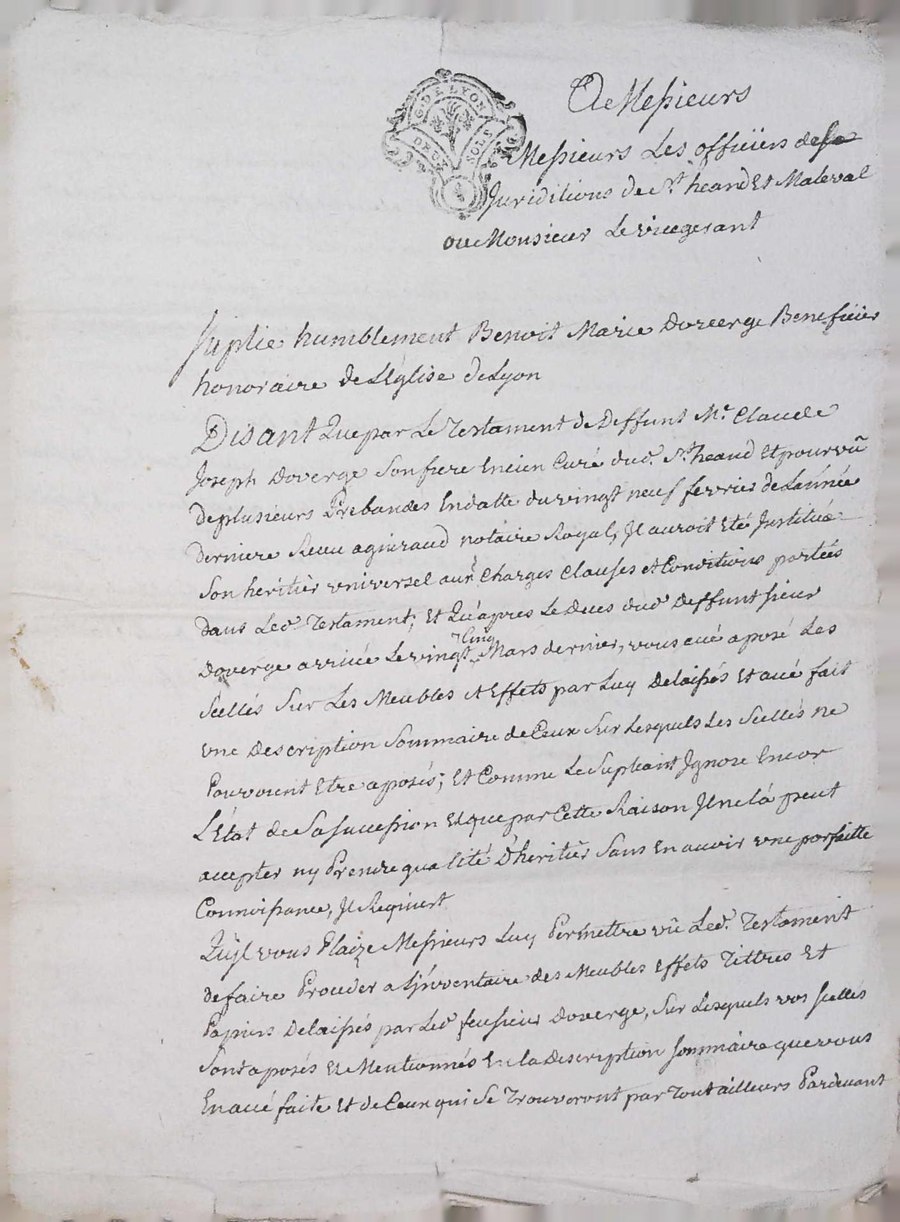 G. DE LYON
DEUX SOLS
A Messieurs
Messieurs Les officiers de la
Juriditions de St. heand Et Maleval
ou Monsieur Le vicegerant
Suplie humblement Benoit Marie Doverge Beneficier
honoraire de L'Eglise de Lyon
Disant Que par Le Testament de Deffunt Me. Claude
Joseph Doverge Son frere Encien Curé dud. St. heand Et pourvû
de plusieurs Prebandes En datte du vingt neuf fevrier de L'année
derniere Receu a notaire Royal, Il auroit Eté Justitué
Son heritier vniversel aux Charges Clauses et Conditions portées
dans Led. Testament; Et Qu'apres Le Deces dud. Deffunt Sieur
Doverge arrivée Le vingt Cinq Mars dernier, vous avé aposé Les
Scellés Sur Les Meubles et Effets par Luy Delaissés Et avé fait
vne Description Sommaire de Ceux Sur Lesquels Les Scellés ne
Pouvoient Etre aposés; Et Comme Le Supliant Ignore Encor
L'Etat de La Succession Et que par Cette Raison Il ne la peut
accepter ny Prendre qualité D'heritier Sans En avoir vne parfaitte
Connoissance, Il Requiert
Qu'il vous Plaize Messieurs Luy Permettre vû Led. Testament
de faire Proceder a L'inventaire des Meubles Effets Tittres Et
Papiers Delaissés par Led. feu Sieur Doverge, Sur Lesquels vos Scellés
Sont aposés Et Mentionnés En la Description Sommaire que vous
En avé faite Et de Ceux qui Se Trouveront par Tout ailleurs Pardevant